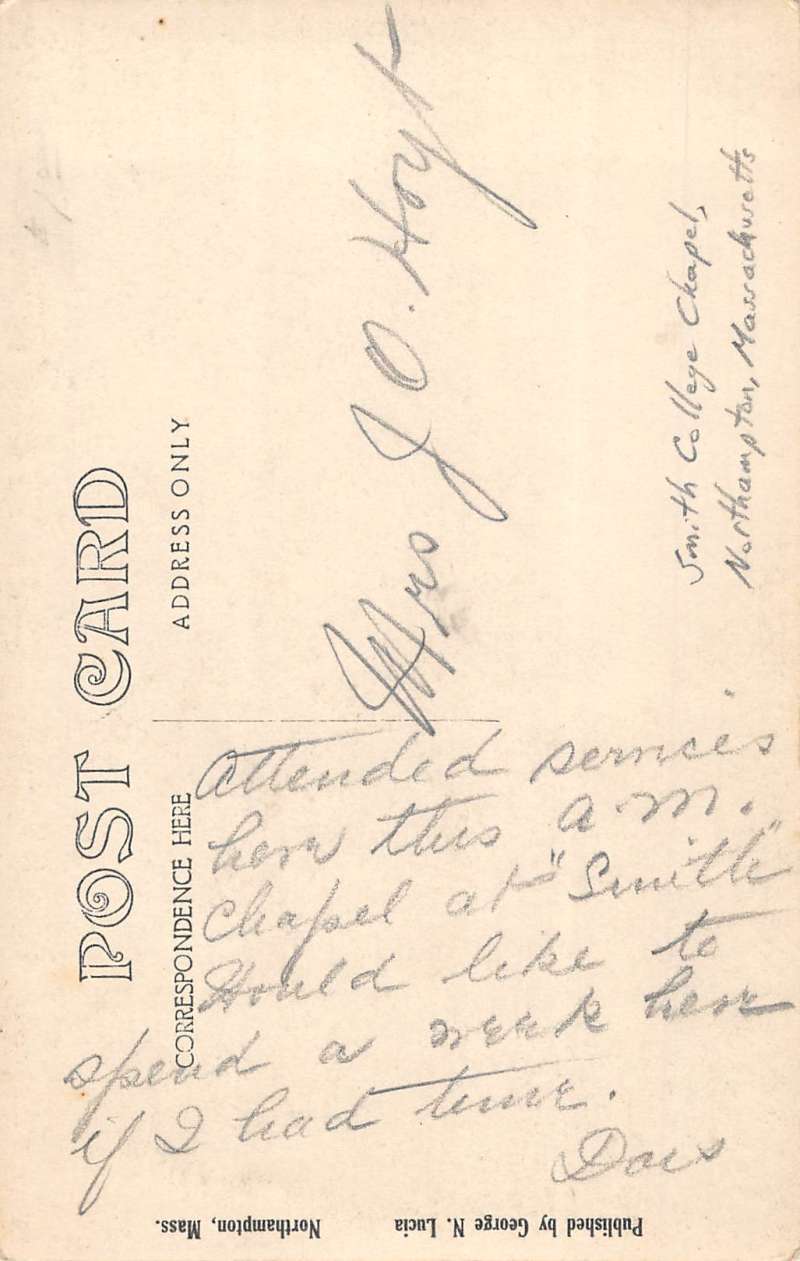 POST CARD
CORRESPONDENCE HERE
ADDRESS ONLY
Attended services
here this a.m.
Chapel at "Smith"
Would like to
spend a week here
if I had time.
Mrs J O. Hoyt
Smith College Chapel,
Northampton, Massachusetts
Published by George N. Lucia
Northampton, Mass.